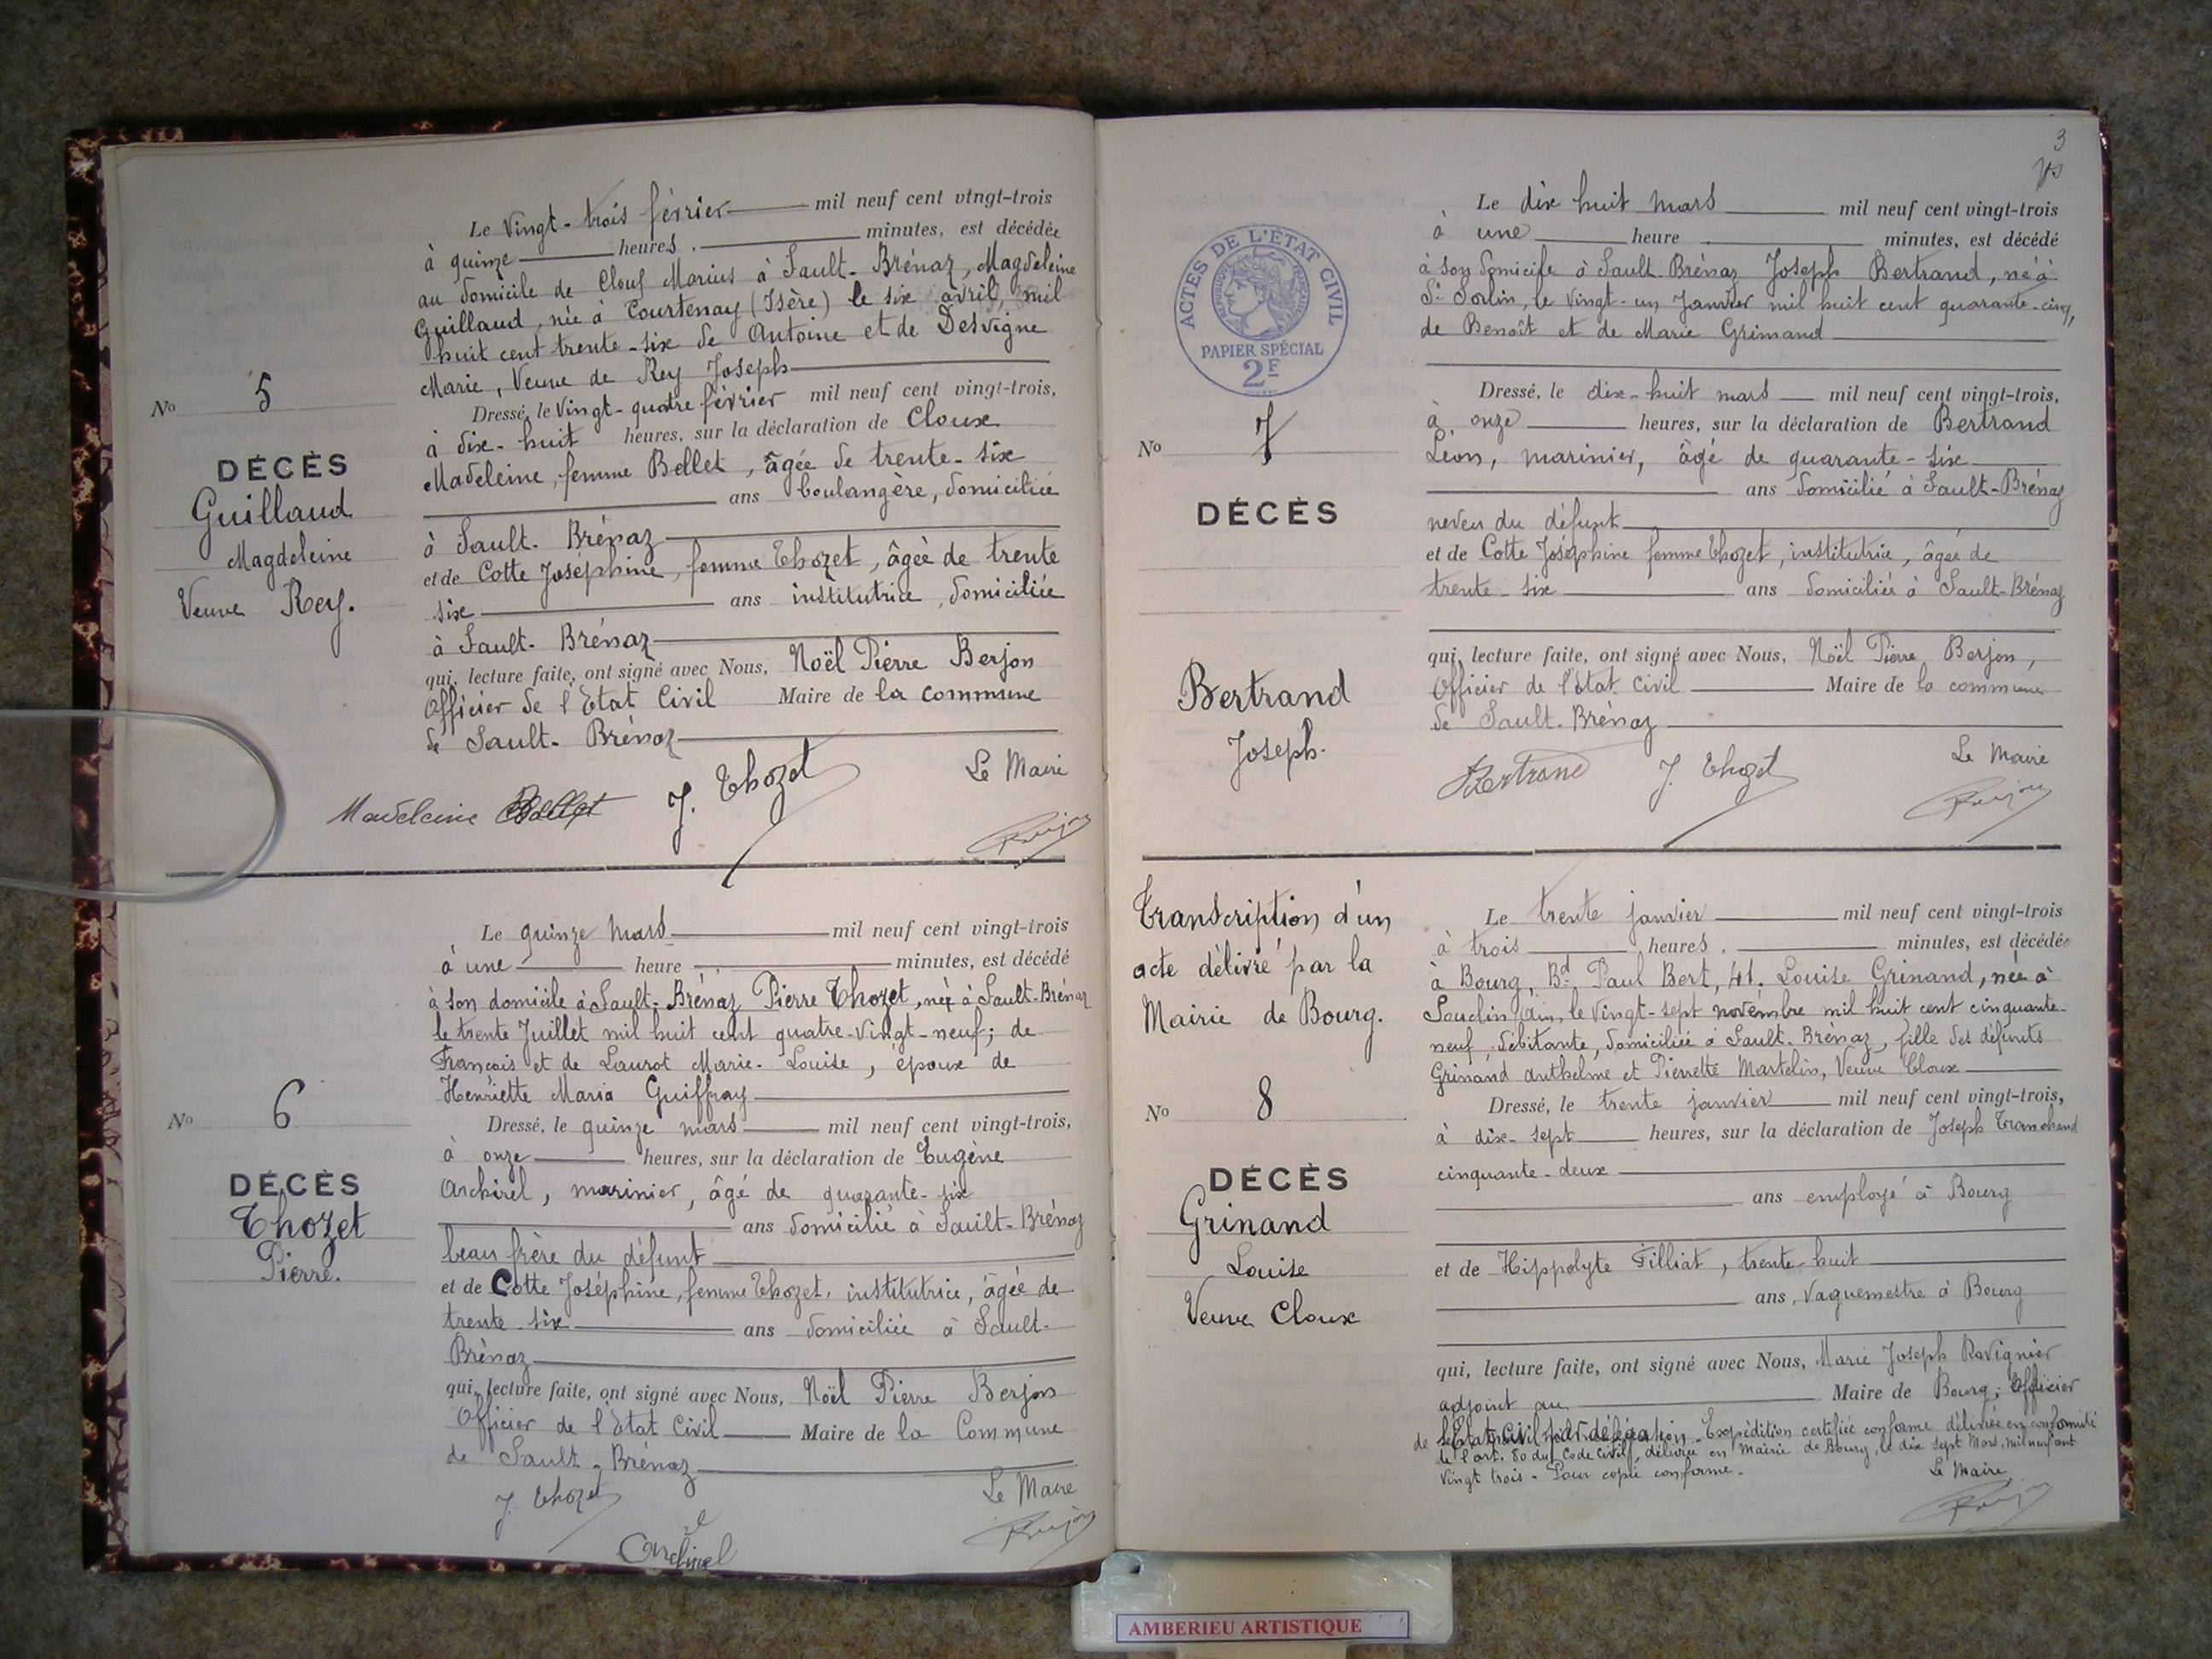 Le Vingt-trois février mil neuf cent vingt-trois
à quinze heures . minutes, est décédée
au domicile de Clouf Marius à Sault-Brénaz, Magdeleine
Guillaud, née à Courtenay (Isère) le six avril, mil
huit cent trente-six de Antoine et de Desvigne
Marie, Veuve de Rey Joseph
No 5
Dressé, le Vingt-quatre février mil neuf cent vingt-trois,
à dix-huit heures, sur la déclaration de Cloux
DÉCÈS
Madeleine, femme Bellet, âgée de trente-six
Guillaud
ans boulangère, domiciliée
Magdeleine
à Sault-Brénaz
Veuve Rey.
et de Cotte Joséphine, femme Thozet, âgée de trente
six ans institutrice, domiciliée
à Sault-Brénaz
qui, lecture faite, ont signé avec Nous, Noël Pierre Berjon
Officier de l'Etat Civil Maire de la commune
de Sault-Brénaz
Le Maire
Madeleine Bellet J. Thozet
Berjon
Le quinze mars mil neuf cent vingt-trois
à une heure minutes, est décédé
à son domicile à Sault-Brénaz Pierre Thozet, né à Sault-Brénaz
le trente Juillet mil huit cent quatre-vingt-neuf; de
François et de Laurot Marie-Louise, époux de
Henriette Maria Guiffray
No 6
Dressé, le quinze mars mil neuf cent vingt-trois,
à onze heures, sur la déclaration de Eugène
DÉCÈS
Archirel, marinier, âgé de quarante-six
Thozet
ans domicilié à Sault-Brénaz
Pierre.
beau frère du défunt
et de Cotte Joséphine, femme Thozet, institutrice, âgée de
trente-six ans domiciliée à Sault-
Brénaz
qui, lecture faite, ont signé avec Nous, Noël Pierre Berjon
Officier de l'Etat Civil Maire de la Commune
de Sault-Brénaz
J. Thozet Le Maire
Archirel Berjon
3
ACTES DE L'ÉTAT CIVIL
RÉPUBLIQUE FRANÇAISE
PAPIER SPÉCIAL
2F
Le dix huit mars mil neuf cent vingt-trois
à une heure minutes, est décédé
à son domicile à Sault-Brénaz Joseph Bertrand, né à
St Sorlin, le vingt-un Janvier mil huit cent quarante-cinq,
de Benoît et de Marie Grimand
Dressé, le dix-huit mars mil neuf cent vingt-trois,
No 7
à onze heures, sur la déclaration de Bertrand
Léon, marinier, âgé de quarante-six
DÉCÈS
ans domicilié à Sault-Brénaz
neveu du défunt
et de Cotte Joséphine femme Thozet, institutrice, âgée de
trente-six ans domiciliée à Sault-Brénaz
Bertrand
Joseph.
qui, lecture faite, ont signé avec Nous, Noël Pierre Berjon,
Officier de l'Etat Civil Maire de la commune
de Sault-Brénaz
Le Maire
Bertrand J. Thozet
Berjon
Transcription d'un
acte délivré par la
Mairie de Bourg.
Le trente janvier mil neuf cent vingt-trois
à trois heures . minutes, est décédée
à Bourg, Bd Paul Bert, 41. Louise Grinand, née à
Souclin, Ain, le vingt-sept novembre mil huit cent cinquante-
neuf, débitante, domiciliée à Sault-Brénaz, fille des défunts
Grinand Anthelme et Pierrette Martelin, Veuve Cloux
No 8
Dressé, le trente janvier mil neuf cent vingt-trois,
à dix-sept heures, sur la déclaration de Joseph Tranchand
DÉCÈS
cinquante-deux
Grinand
ans employé à Bourg
Louise
Veuve Cloux
et de Hippolyte Filliat, trente-huit
ans, Vaguemestre à Bourg
qui, lecture faite, ont signé avec Nous, Marie Joseph Ravignier
adjoint au Maire de Bourg; Officier
de l'Etat Civil par délégation. Expédition certifiée conforme délivrée en conformité
de l'art. 80 du Code Civil, délivrée en Mairie de Bourg, le dix sept Mars, mil neuf cent
Vingt trois. Pour copie conforme.
Le Maire
Berjon
AMBERIEU ARTISTIQUE